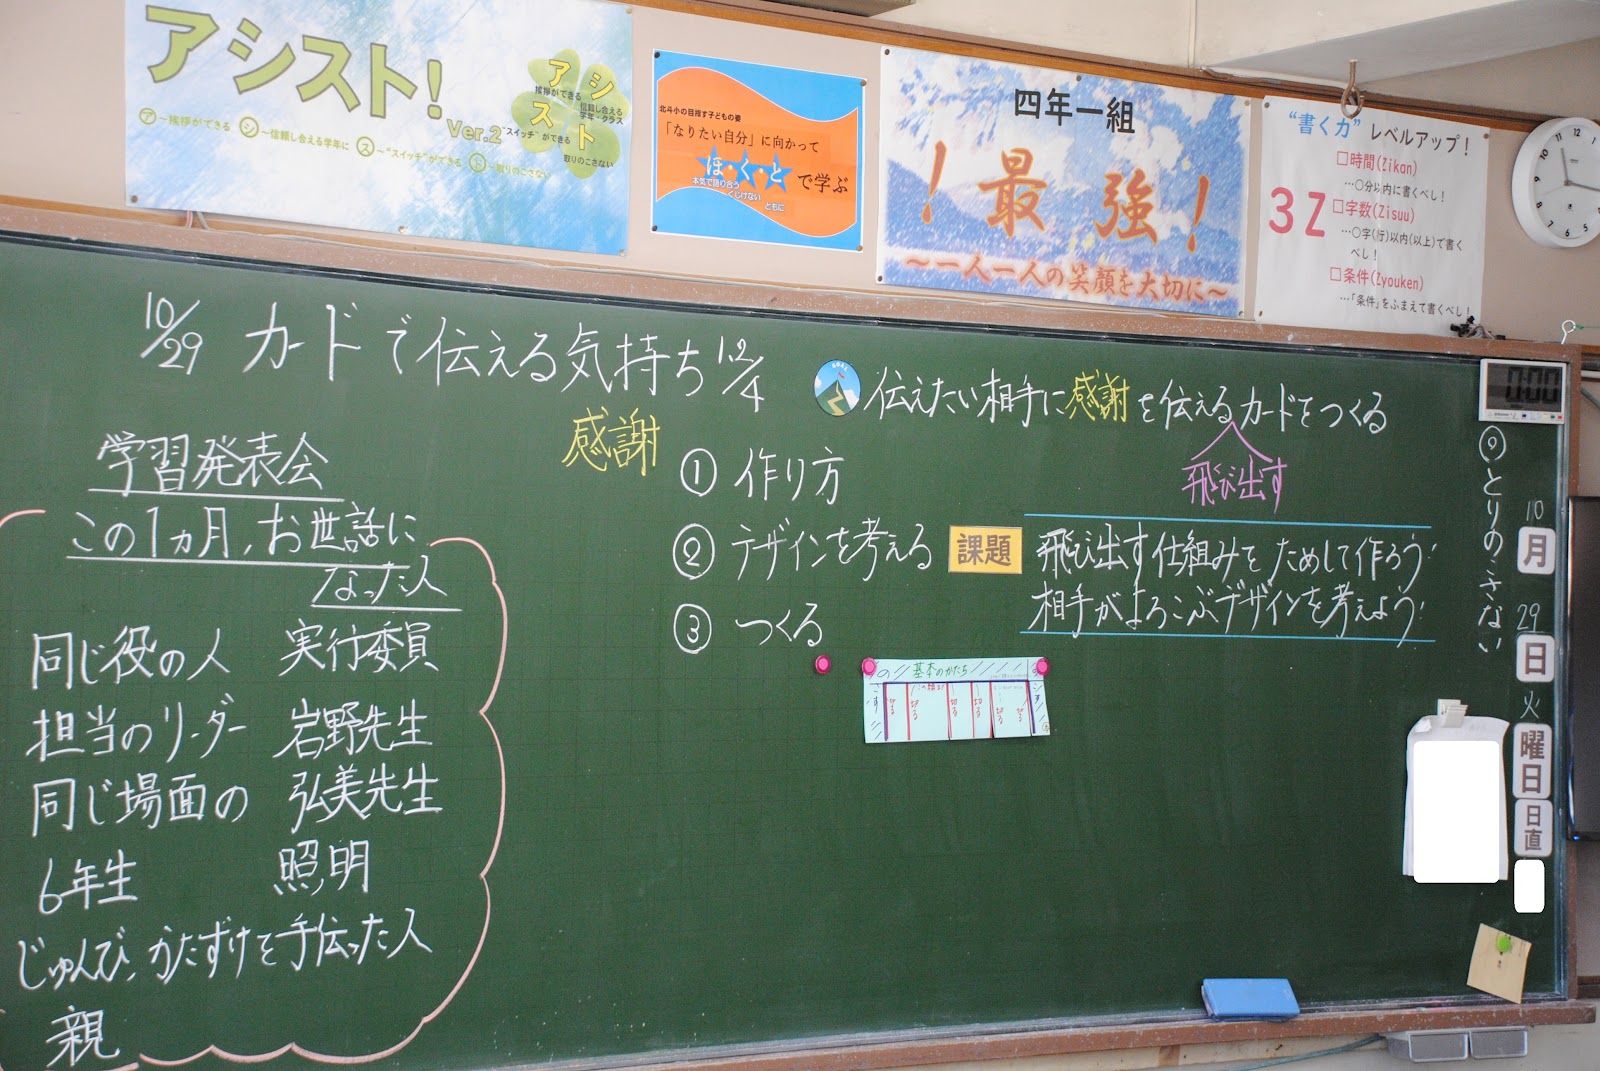 アシスト!
Ver.2
ア～挨拶ができる シ～信頼し合える学年に ス～"スイッチ"ができる ト～取りのこさない
ア
挨拶ができる
シ
信頼し合える
学年・クラス
ス
"スイッチ"ができる
ト
取りのこさない
北斗小の目指す子どもの姿
「なりたい自分」に向かって
ほ・く・と で学ぶ
本気で語り合う
くじけない
ともに
四年一組
!最強!
～一人一人の笑顔を大切に～
"書く力"レベルアップ!
3Z
□時間(Zikan)
…○分以内に書くべし!
□字数(Zisuu)
…○字(行)以内(以上)で書く
べし!
□条件(Zyouken)
…「条件」をふまえて書くべし!
10/29 カードで伝える気持ち 1.2/4
感謝
学習発表会
この1ヵ月、お世話に
なった人
同じ役の人 実行委員
担当のリーダー 岩野先生
同じ場面の 弘美先生
6年生 照明
じゅんび、かたずけを手伝った人
親
伝えたい相手に感謝を伝えるカードをつくる
飛び出す
① 作り方
② デザインを考える
③ つくる
課題
飛び出す仕組みをためして作ろう!
相手がよろこぶデザインを考えよう!
基本のかたち
0:00
とりのこさない
10
月
29
日
火
曜日
日直